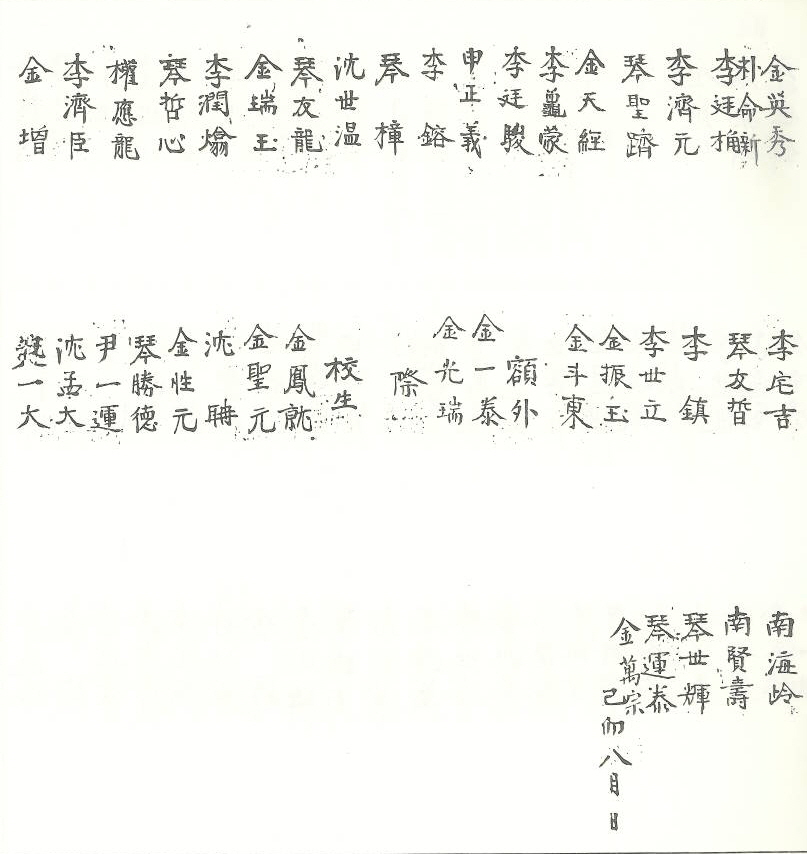 金英秀
朴命新
李廷桷
李濟元
琴聖躋
金天經
李鼉蒙
李廷駿
申正義
李鎔
琴樟
沈世温
琴友龍
金瑞玉
李潤爚
琴哲心
權應龍
李濟臣
金增
李宅吉
琴友晳
李鎮
李世立
金振玉
金斗東
額外
金一泰
金光瑞
際
校生
金鳳就
金聖元
沈聃
金性元
琴勝德
尹一運
沈孟大
一大
南海岭
南賢壽
琴世輝
琴運泰
金萬宗
己卯八月日